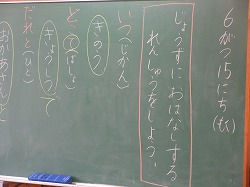 6がつ15にち(もく)
じょうずにおはなしする
れんしゅうをしよう。
いつ(じかん)
きのう
どこで(ばしょ)
きょうしつで
だれと(ひと)
おかあさんと